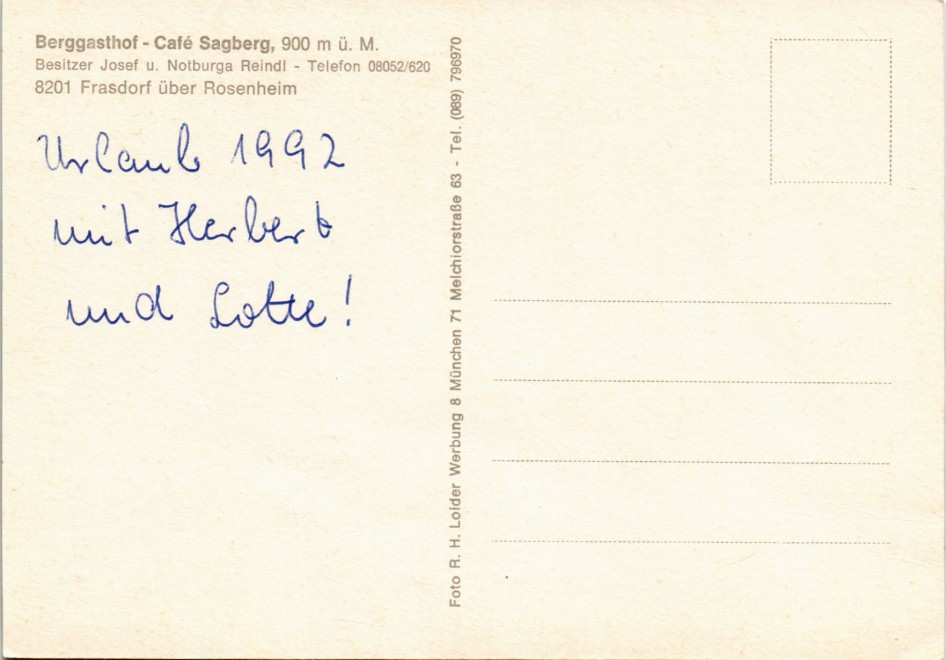 Berggasthof - Café Sagberg, 900 m ü. M.
Besitzer Josef u. Notburga Reindl - Telefon 08052/620
8201 Frasdorf über Rosenheim
Urlaub 1992
mit Herbert
und Lotte!
Foto R. H. Loider Werbung 8 München 71 Melchiorstraße 63 - Tel. (089) 796970